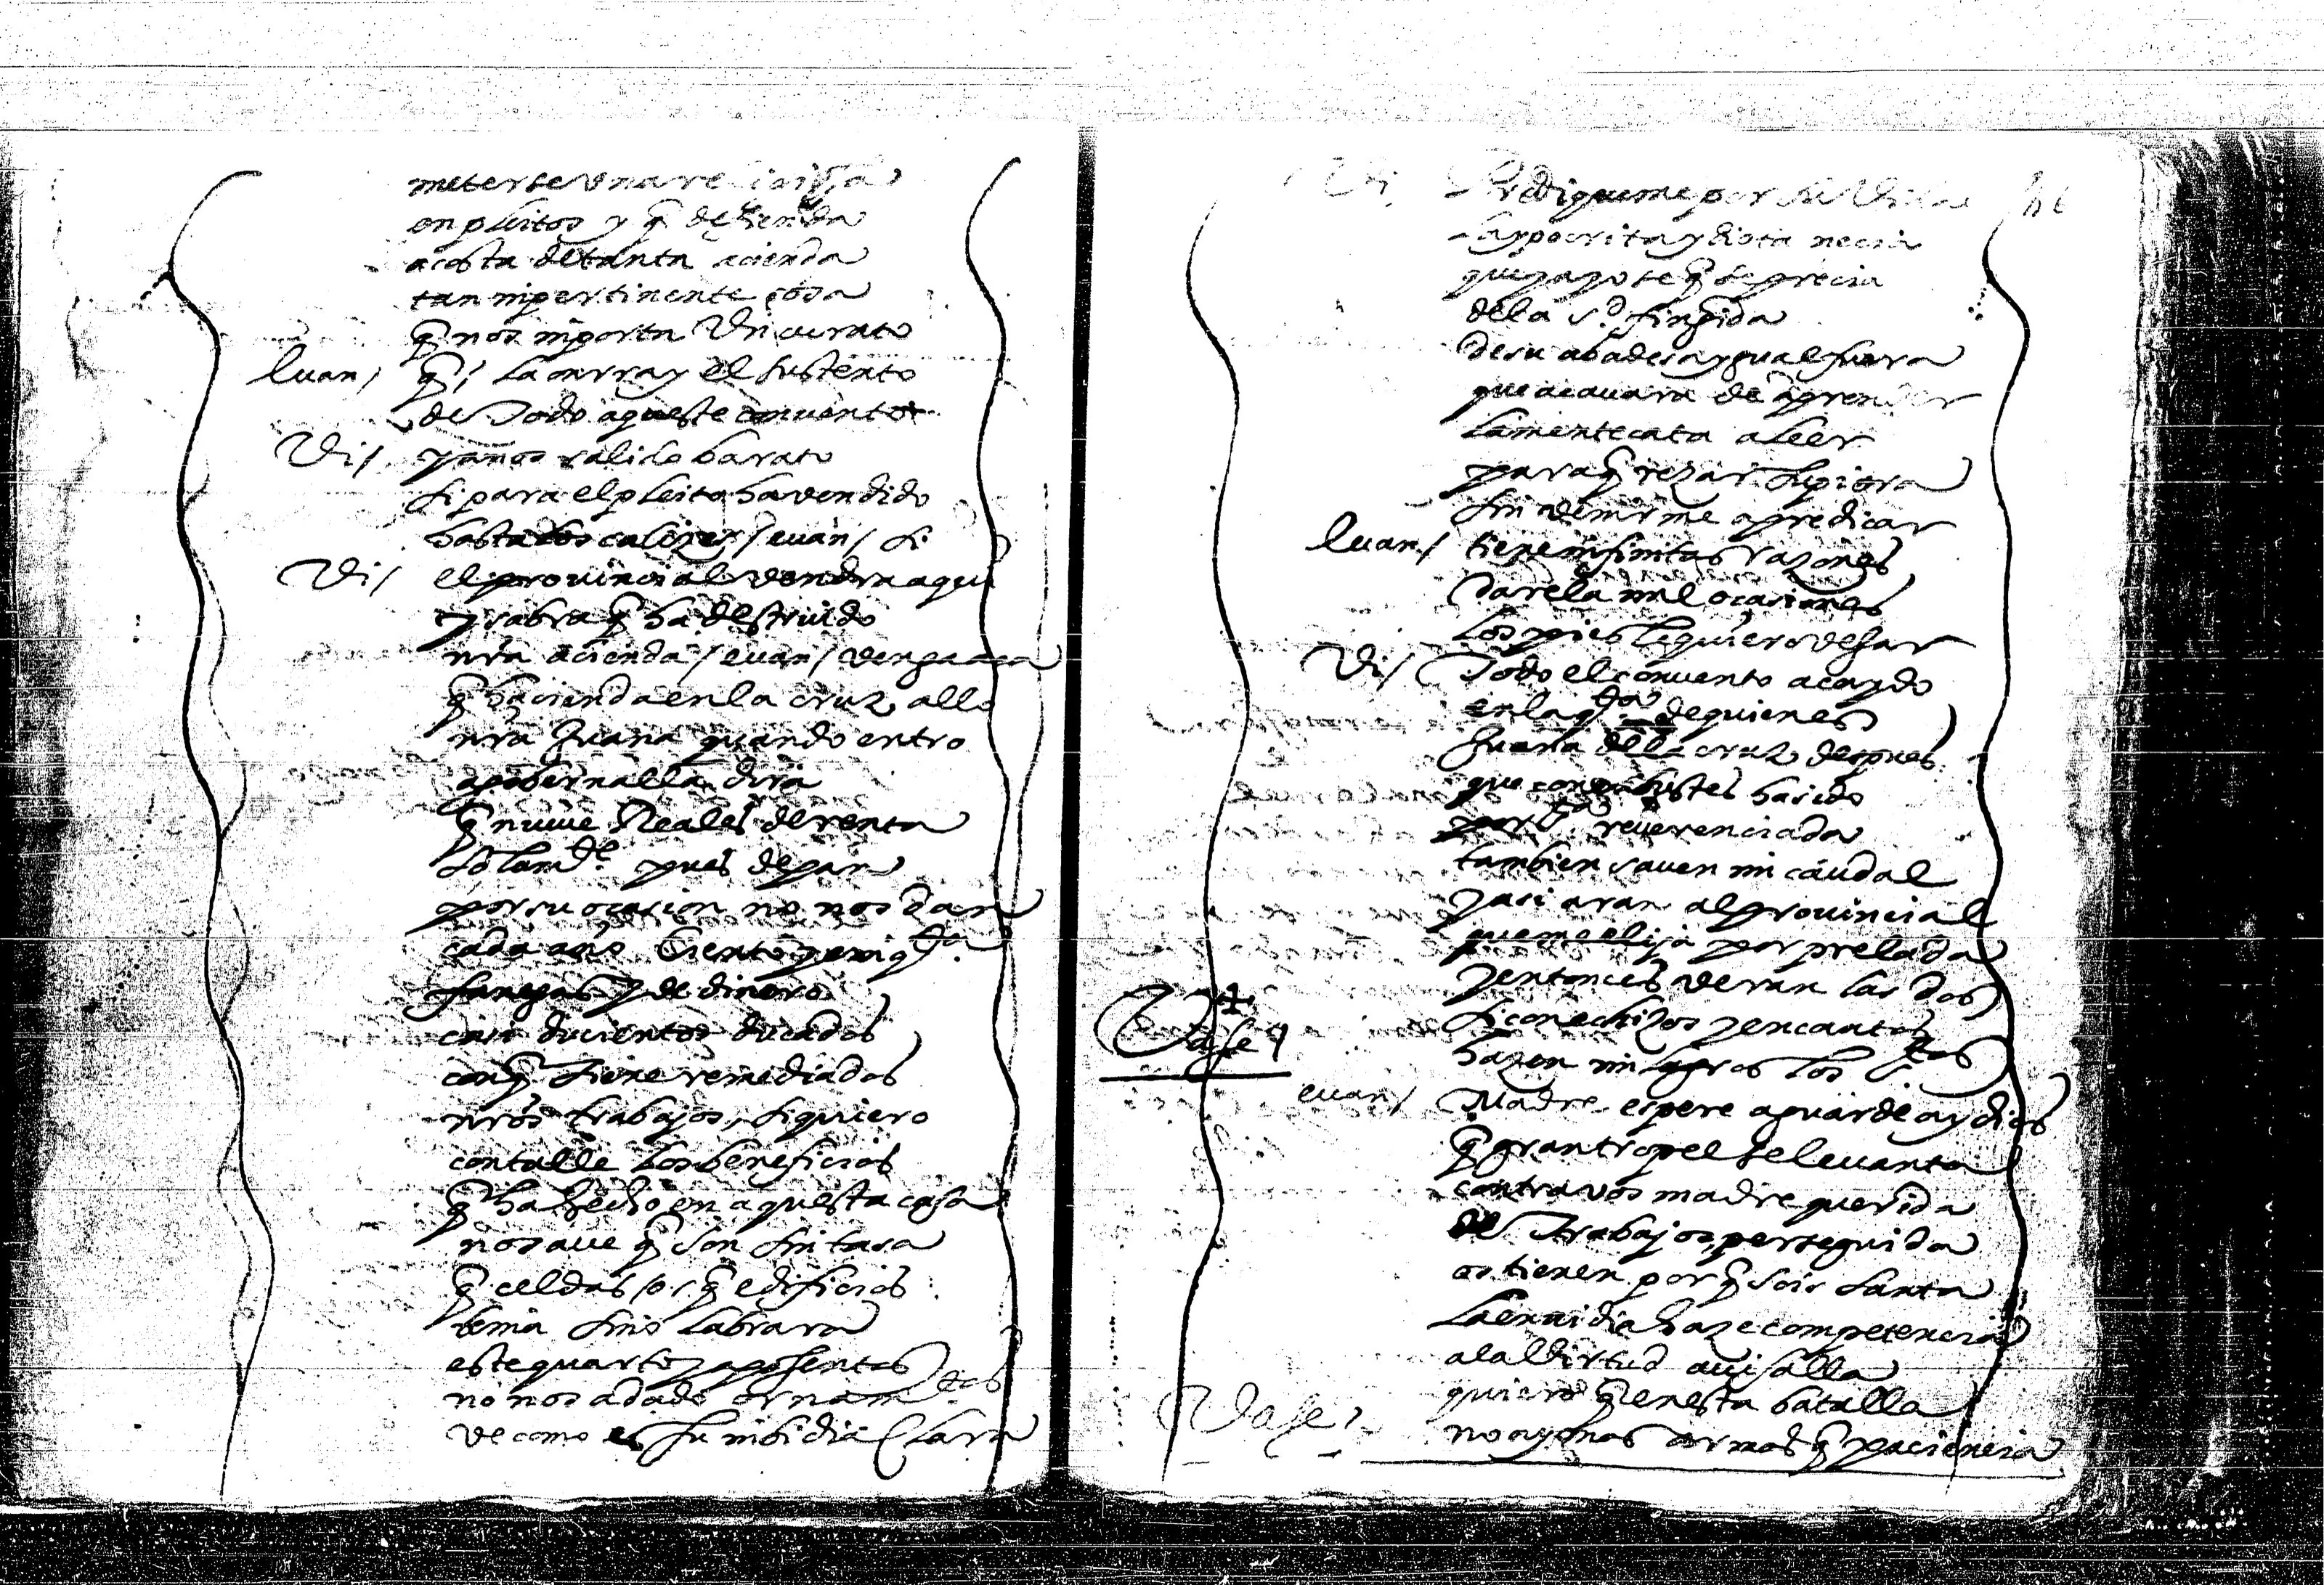 meterse una religiosa
en pleitos y q̃ defienda
a costa de tanta acienda
tan inpertinente cosa
q̃ nos inporta Vn curato
luan/ q̃/ la onrray el sustento
de Todo aqueste conuento
Vi/ yanos salido barato
si para el pleito ha vendido
hasta los calizes / euan / si
Vi/ el prouincial vendra aqui
y sabra q̃ ha destruido
nrã acienda / euan / venga aca
q̃ hacienda en la cruz allo
nrã Juana quando entro
a gobernalla dira
q̃ nueue Reales de renta
solamte pues de pan
por su ocasion no nos dan
cada año Ciento y cinqta
fanegas y de dinero
casi ducientos ducados
conq̃ tiene remediados
nrõs trabajos, si quiero
contalle los beneficios
q̃ ha hecho en aquesta casa
no saue q̃ son sin tasa
q̃ celdas, o q̃ edificios
tenia sino labrara
este quarto y aposentos
no nos a dado ornamtos
ve como es su inbidia Clara
Vi/ Predigueme por su Vida
la ypocrita ydiota necia
que yo se q̃ se precia
de la sd fingida
de su abadesa ygual fuera
que acauara de aprender
la mentecata a leer
paraq̃ rezar supiera
sin venirme a predicar
luan/ tiene infinitas razones
darela mil ocasiones
los pies le quiero vesar
Vi/ Todo el conuento a caydo
en la qta de quien es
Juana de la cruz despues
que con enbustes ha sido
por sta reuerenciada
tambien sauen mi caudal
y asi aran al prouincial
que me elija por prelada
y entonces veran las dos
si con echizos y encantos
hazen milagros los stos
Vase
euan/ Madre espere aguarde ay dios
q̃ gran tropel se leuanta
contra vos madre querida
de Trabajos, perseguida
os tienen por q̃ sois santa
la enuidia haze competencia
a la Virtud auisalla
quiero q̃ en esta batalla
no ay mas armas q̃ paciencia
Vase